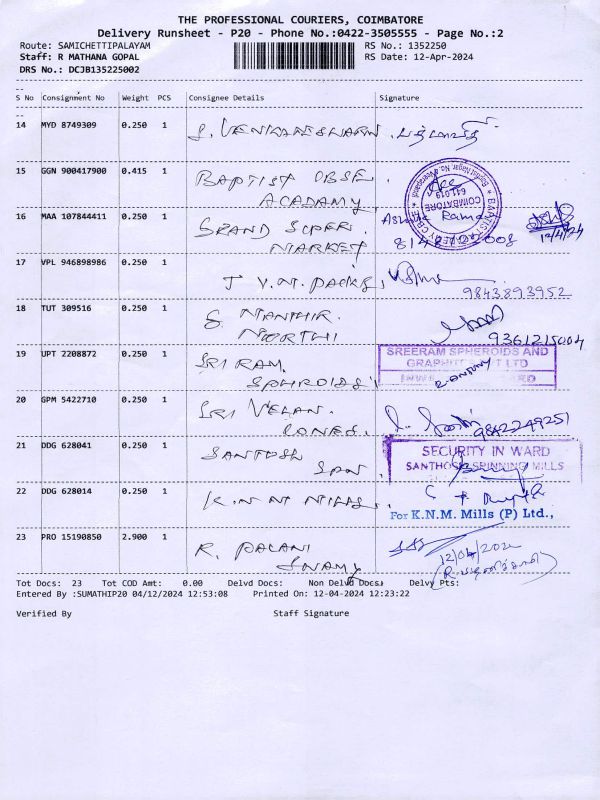 THE PROFESSIONAL COURIERS, COIMBATORE
Delivery Runsheet - P20 - Phone No.:0422-3505555 - Page No.:2
Route: SAMICHETTIPALAYAM RS No.: 1352250
Staff: R MATHANA GOPAL RS Date: 12-Apr-2024
DRS No.: DCJB135225002
S No Consignment No Weight PCS Consignee Details Signature
14 MYD 8749309 0.250 1 S. VENKATESWARN.
15 GGN 900417900 0.415 1 BAPTIST
ACADAMY,
COIMBATORE
641 019
16 MAA 107844411 0.250 1 GRAND SUPER.
MARKET
12/4/24
17 VPL 946898986 0.250 1 J V.M. PACKS,
9843893952
18 TUT 309516 0.250 1 S. MANTHIR.
MOORTHI
9361215004
19 UPT 2208872 0.250 1 SRI RAM.
SPHROIDS,
SREERAM SPHEROIDS AND
20 GPM 5422710 0.250 1 SRI VELAN.
CONES.
9842249251
21 DDG 628041 0.250 1 SANTOSH
SPN
SECURITY IN WARD
SANTHOSH SPINNING MILLS
22 DDG 628014 0.250 1 K.N.M MILLS,
For K.N.M. Mills (P) Ltd.,
23 PRO 15190850 2.900 1 R. PALANI
SWAMY
Tot Docs: 23 Tot COD Amt: 0.00 Delvd Docs: Non Delvd Docs: Delvy Pts:
Entered By :SUMATHIP20 04/12/2024 12:53:08 Printed On: 12-04-2024 12:23:22
Verified By Staff Signature